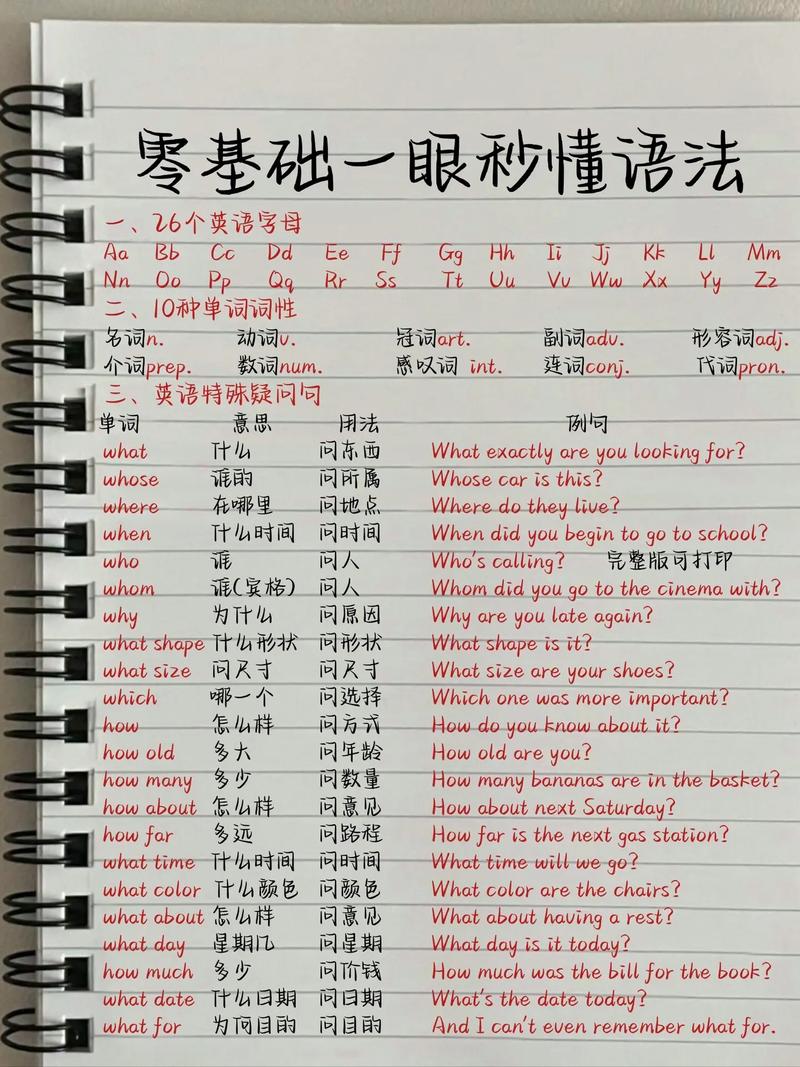 零基础一眼秒懂语法
一、26个英语字母
Aa Bb Cc Dd Ee Ff Gg Hh Ii Jj Kk Ll Mm
Nn Oo Pp Qq Rr Ss Tt Uu Vv Ww Xx Yy Zz
二、10种单词词性
名词n. 动词v. 冠词art. 副词adv. 形容词adj.
介词prep. 数词num. 感叹词 int. 连词conj. 代词pron.
三、英语特殊疑问句
单词 意思 用法 例句
what 什么 问东西 What exactly are you looking for?
whose 谁的 问所属 Whose car is this?
where 在哪里 问地点 Where do they live?
when 什么时间 问时间 When did you begin to go to school?
who 谁 问人 Who's calling? 完整版可打印
whom 谁(宾格) 问人 Whom did you go to the cinema with?
why 为什么 问原因 Why are you late again?
what shape 什么形状 问形状 What shape is it?
what size 问尺寸 问尺寸 What size are your shoes?
which 哪一个 问选择 Which one was more important?
how 怎么样 问方式 How do you know about it?
how old 多大 问年龄 How old are you?
how many 多少 问数量 How many bananas are in the basket?
how about 怎么样 问意见 How about next Saturday?
how far 多远 问路程 How far is the next gas station?
what time 什么时间 问时间 What time will we go?
what color 什么颜色 问颜色 What color are the chairs?
what about 怎么样 问意见 What about having a rest?
what day 星期几 问星期 What day is it today?
how much 多少 问价钱 How much was the bill for the book?
what date 什么日期 问日期 What's the date today?
what for 为何目的 问目的 And I can't even remember what for.